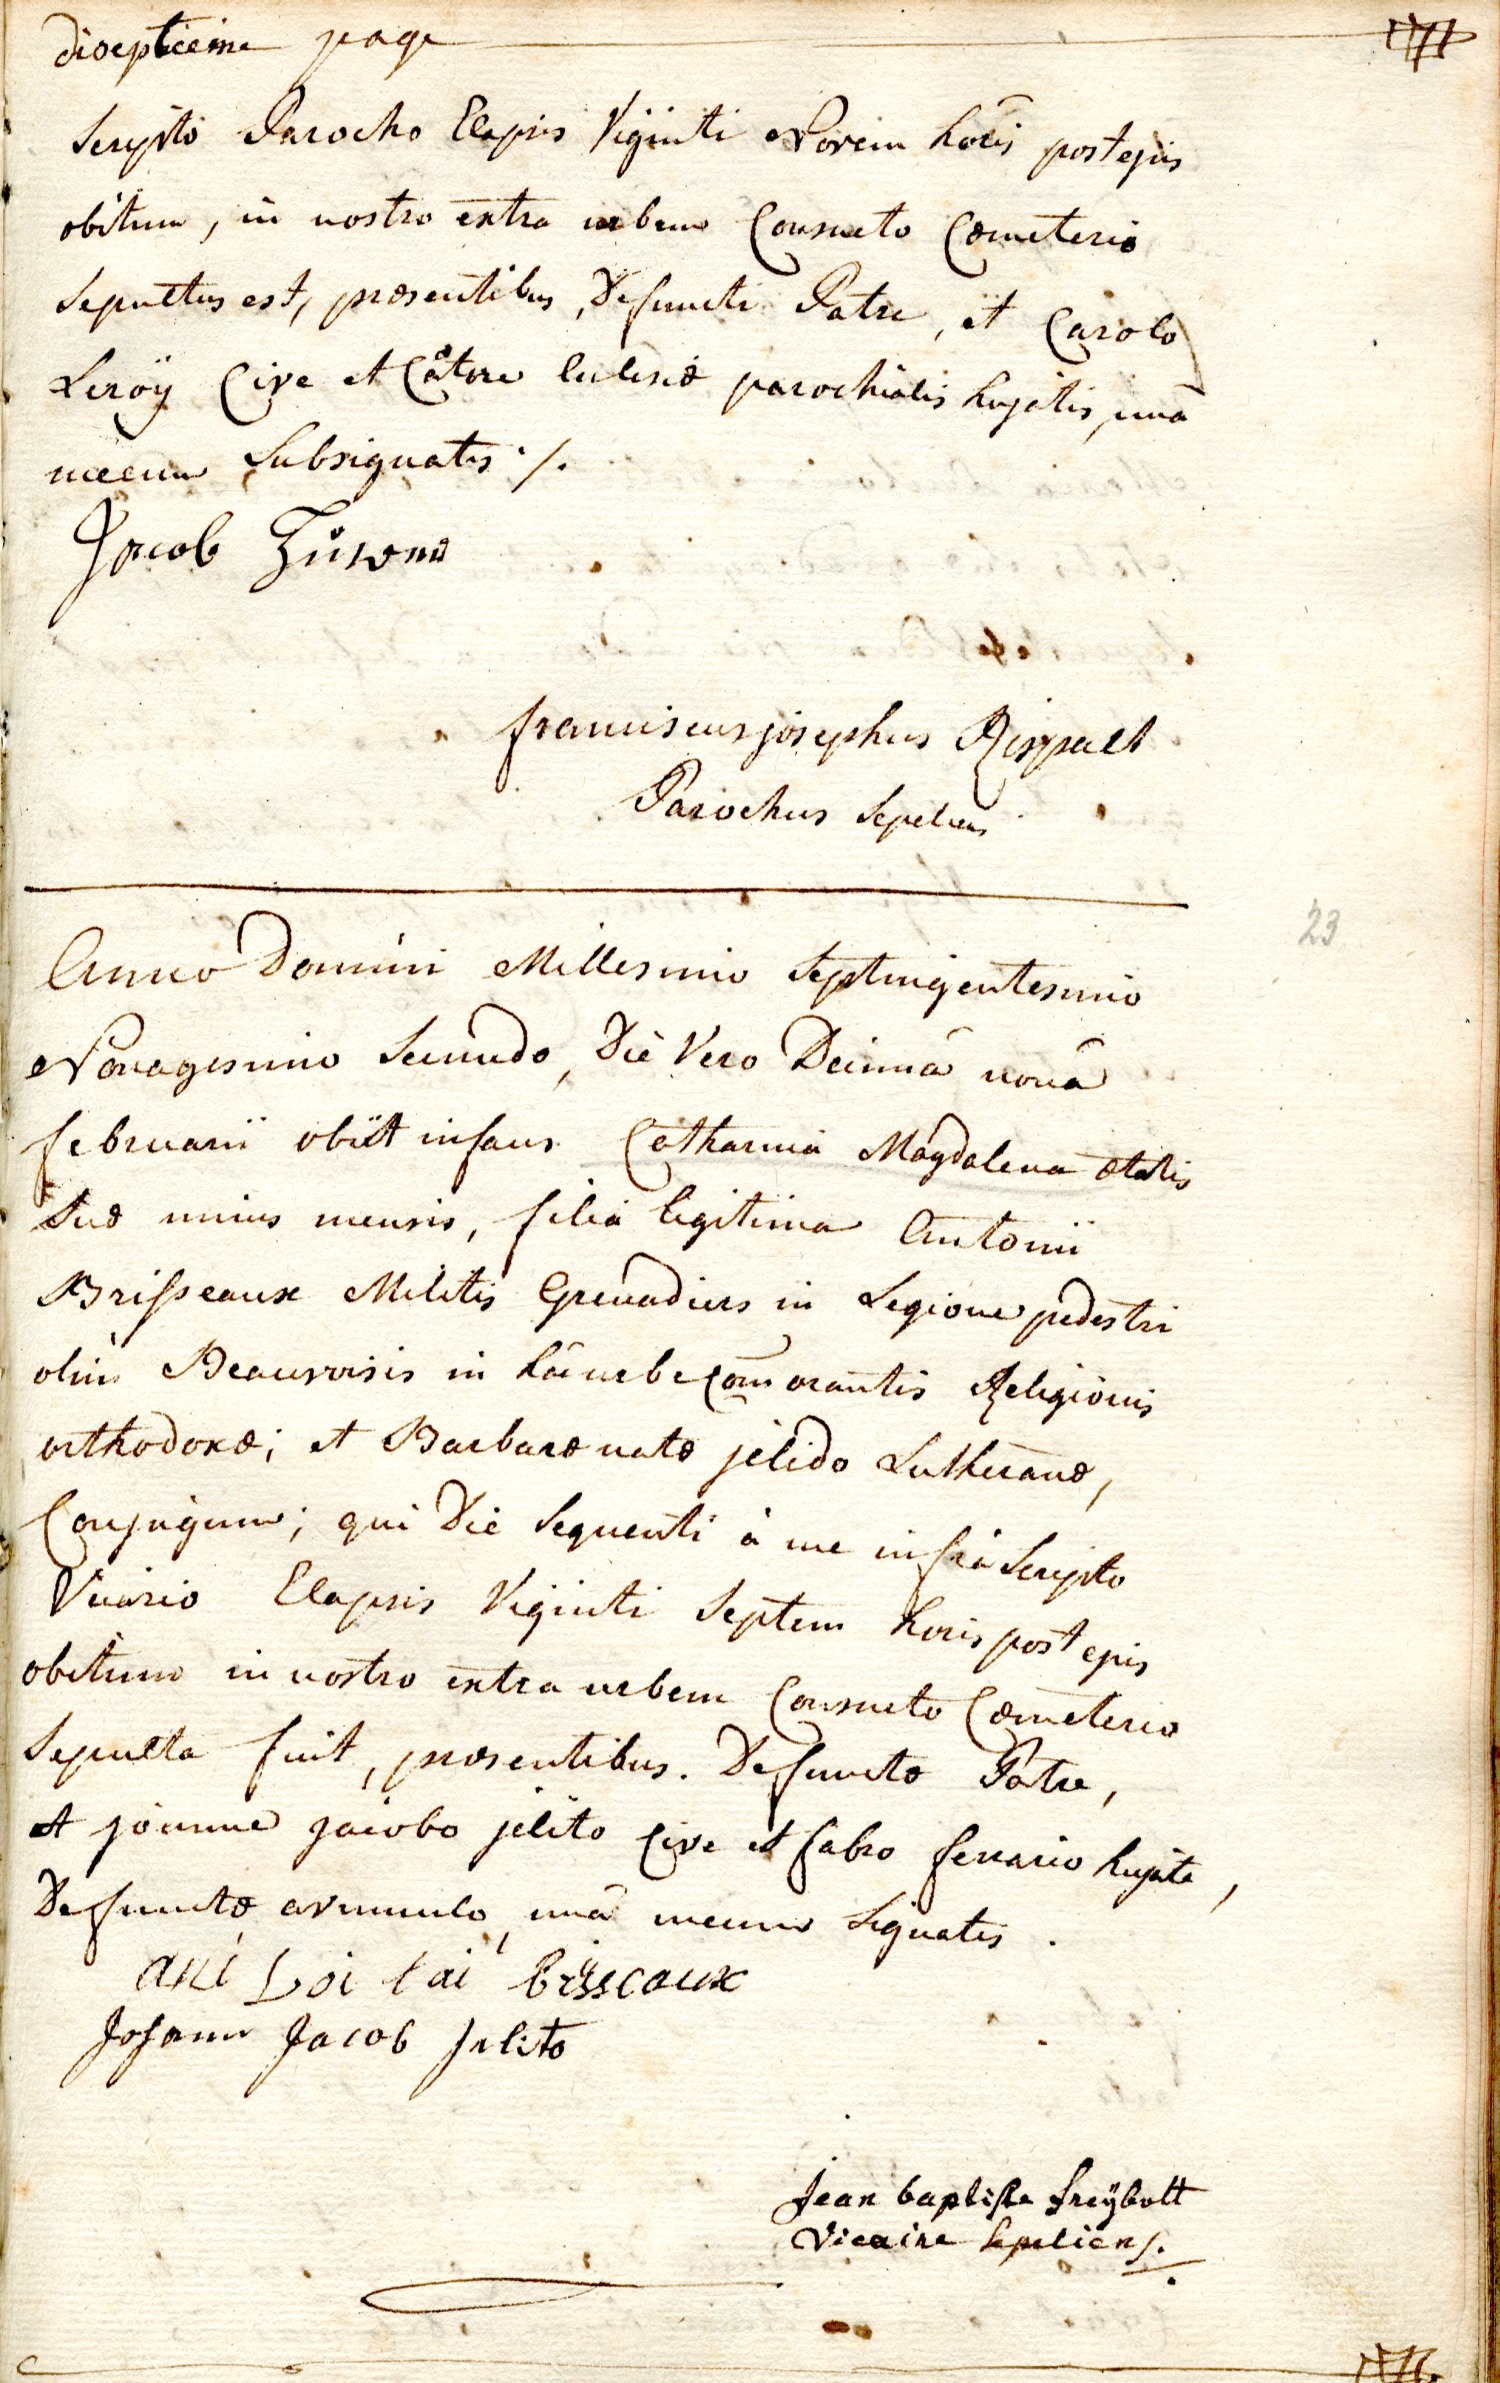 diseptieme page
Scripto Parocho Elapsis Viginti Novem horis post ejus
obitum, in nostro extra urbem Consueto Cœmeterio
Sepultus est, præsentibus, Defuncti Patre, et Carolo
Leroÿ Cive et Cãtore Ecclesiæ parochialis hujatis, unà
mecum Subsignatis ·/.
Jacob
franciscus josephus
Parochus Sepeliens
23
Anno Domini Millesimo Septingentesimo
Nonagesimo Secundo, Die Vero Decimâ nonâ
februarii obiit infans Catharina Magdalena ætatis
Suæ unius mensis, filia legitima Antonii
Brisseaux Militis Grenadiers in Legione pedestri
olim Beauvoisis in hâc urbe Com̃orantis Religionis
orthodoxæ; et Barbaræ natæ jelido Lutheranæ,
Conjugum; qui Die Sequenti à me infrà Scripto
Vicario Elapsis Viginti Septem horis post ejus
obitum in nostro extra urbem Consueto Cœmeterio
Sepulta fuit, præsentibus. Defunctæ Patre,
et joanne jacobo jelito Cive et fabro ferrario hujate,
Defunctæ avunculo, unà mecum Signatis.
bisseaux
Johann Jacob Jelito
Jean baptiste freÿbott
Vicaire Sepeliens/.